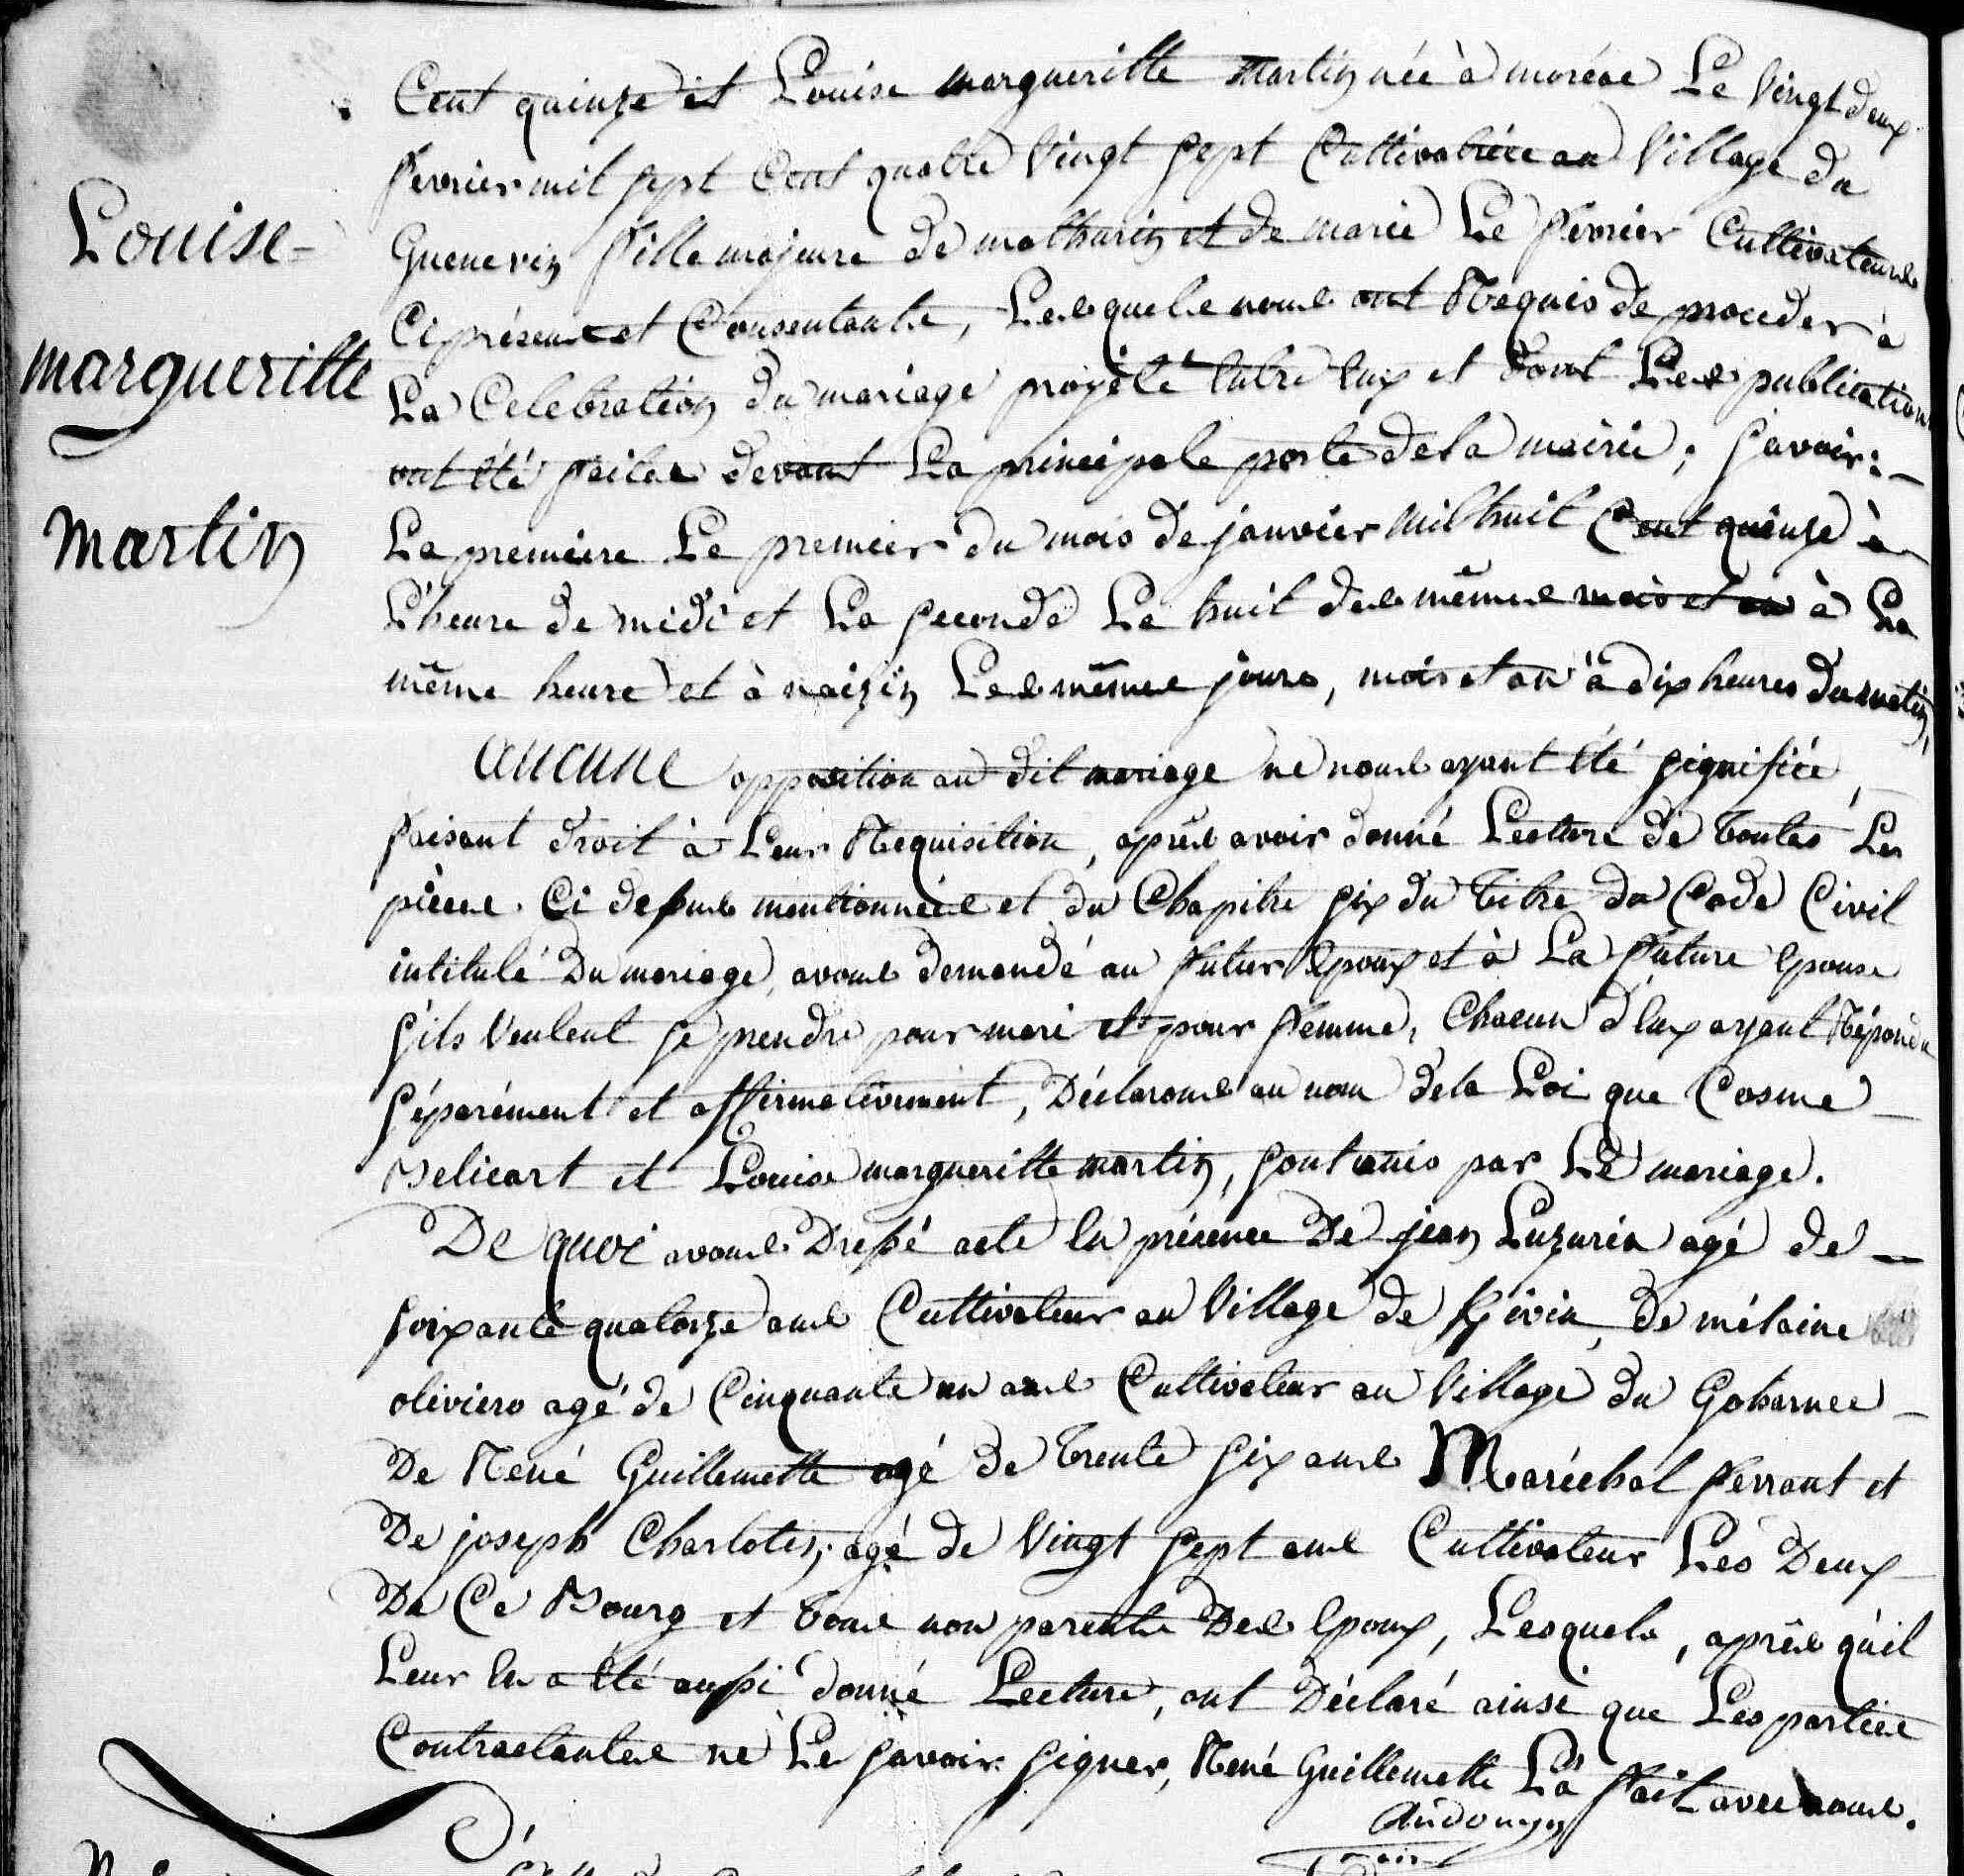 Louise-
margueritte
martin
Cent quinze et Louise margueritte martin née à moréac Le vingt deux
fevrier mil sept Cent quatre vingt sept Cultivatrice au village du
Guenevin fille majeure de mathurin et de marie Le février Cultivateurs
Ci présens et Consentants, Lesquels nous ont Requis de proceder à
La Celebration du mariage projété entre eux et dont Les publications
ont été faites devant La principale porte de la mairie; savoir:
La premiere Le premier du mois de janvier mil huit Cent quinze à
L'heure de midi et La seconde Le huit des mêmes mois et an à La
même heure et à naizin Les mêmes jours, mois et an à dix heures du matin,
aucune opposition au dit mariage ne nous ayant été signifiée,
faisant droit à Leur Requisition, après avoir donné Lecture de toutes Les
pièces Ci dessus mentionnées et du Chapitre six du titre du Code Civil
intitulé Du mariage, avons demandé au futur epoux et à La future epouse
s'ils veulent se prendre pour mari et pour femme, Chacun d'eux ayant Répondu
séparément et affirmativement, Déclarons au nom de la Loi que Cosme
Belicart et Louise margueritte martin, sont unis par Le mariage.
De quoi avons Dressé acte en présence De jean Luzurin agé de
soixante quatorze ans Cultivateur au village de Kivin, de mélaine
oliviero agé de Cinquante un ans Cultivateur au village du Goharnec
De René Guillemette agé de trente six ans Maréchal ferrant et
De joseph Charlotin, agé de vingt sept ans Cultivateur Les Deux
De Ce Bourg et tous non parents Des epoux, Lesquels, après qu'il
Leur en a été aussi donné Lecture, ont Déclaré ainsi que Les parties
Contractantes ne Le savoir signer, René Guillemette L'a fait avec nous.